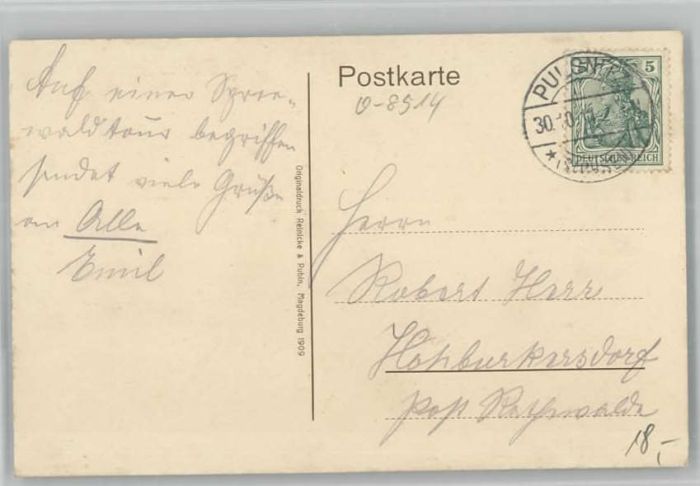 Auf einer Spree-
waldtour begriffen
sendet viele Grüße
an Alle
Emil
Originaldruck Reinicke & Rubin, Magdeburg 1909
Postkarte
O-8514
PULSNITZ
30.10.
5
DEUTSCHES REICH
Herrn
Robert Herr
Hohburkersdorf
Post Rathewalde
18,-